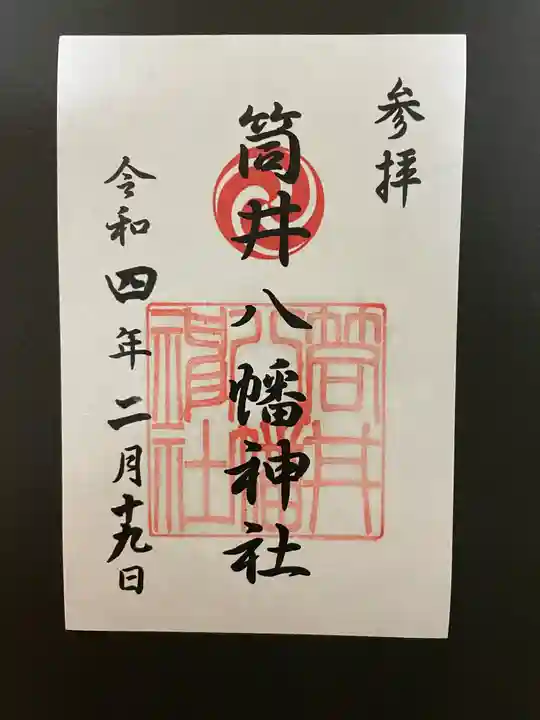 参拝
筒井八幡神社
筒井
八幡
神社
令和四年二月十九日